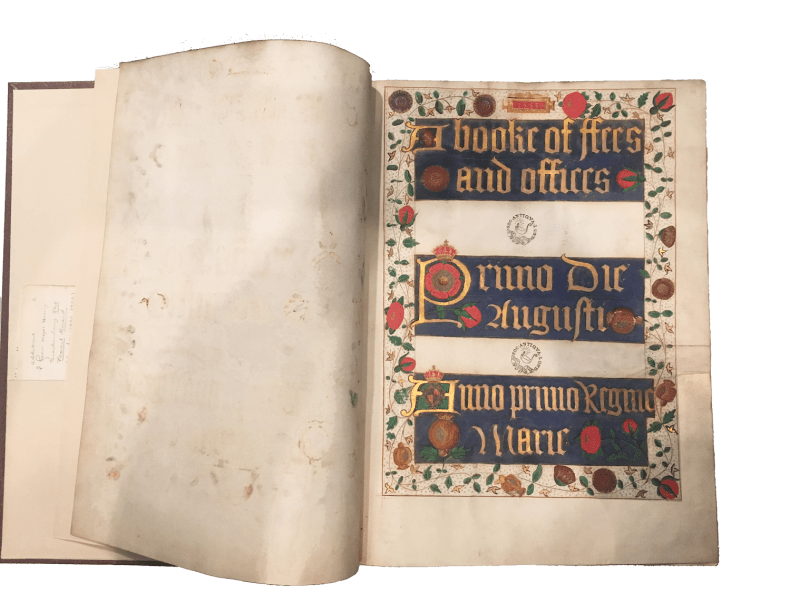 A booke of ffees
and offices
Primo Die
Augusti
Anno primo Regine
Marie